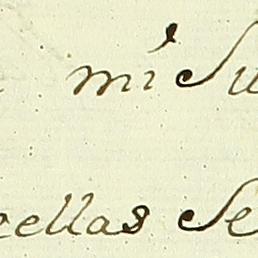 mi Su
cellas Se